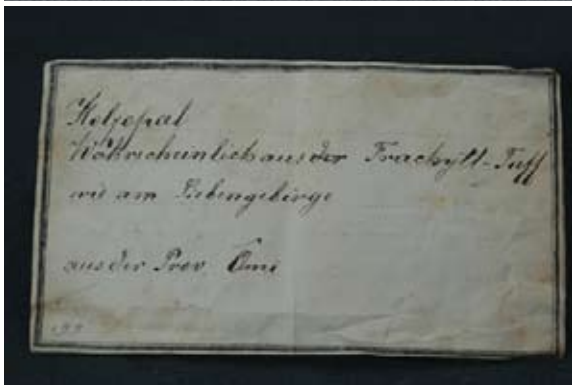 Holzopal
Wahrscheinlich aus der Trachytt-Tuff
wie am Siebengebirge
aus der Prov. Ômi